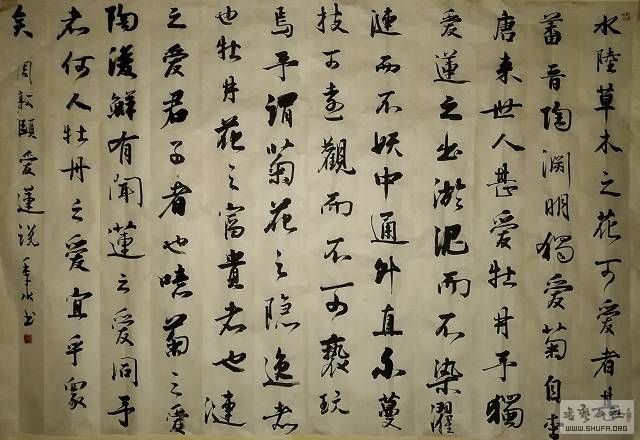 水陸草木之花可愛者甚
蕃晋陶渊明獨愛菊自李
唐来世人甚愛牡丹予獨
愛蓮之出淤泥而不染濯
漣而不妖中通外直不蔓
枝可遠觀而不可褻玩
焉予謂菊花之隐逸者
也牡丹花之富貴者也蓮
之愛君子者也噫菊之愛
陶後鮮有聞蓮之愛同予
者何人牡丹之愛宜乎眾
矣 周敦頤愛蓮說 书
WWW.SHUFA.ORG